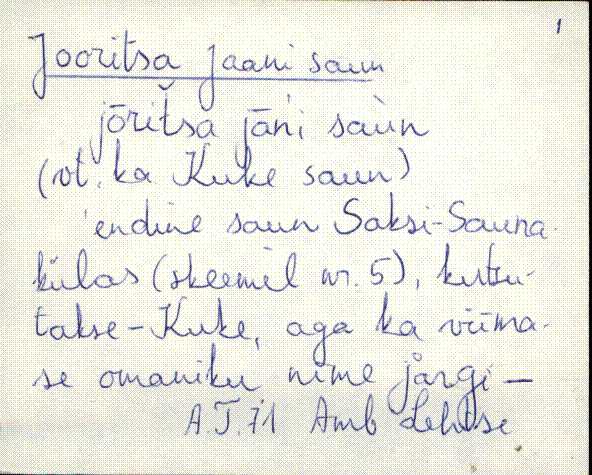 1
Jooritsa Jaani saun
jōriťsa jāńi saùn
(vt. ka Kuke saun)
endine saun Saksi-Sauna-
külas (skeemil nr. 5), kutsu-
takse - Kuke, aga ka viima-
se omaniku nime järgi —
A.T. 71 Amb Lehtse